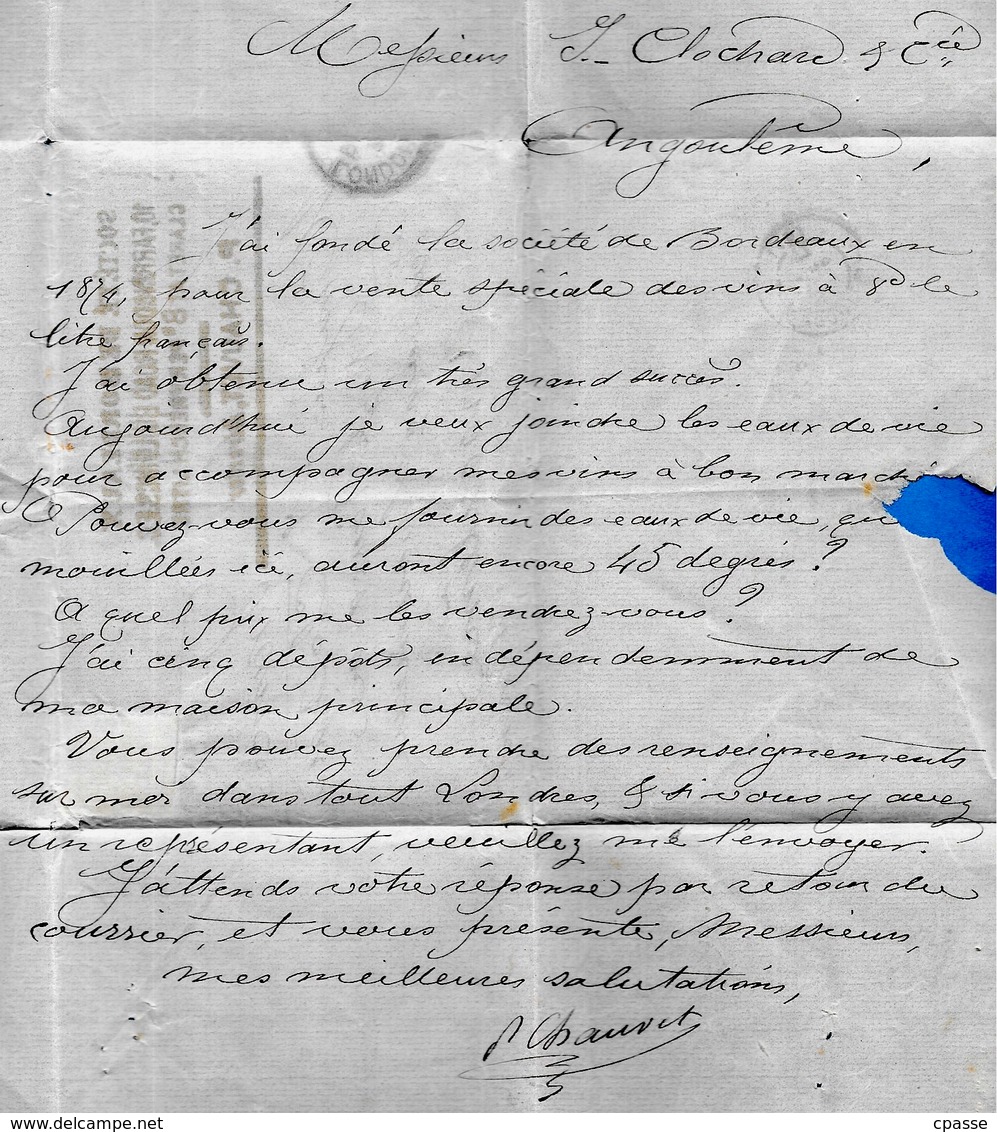 Messieurs J. Clochard & Cie
Angoulême,
J'ai fondé la société de Bordeaux en
1874, pour la vente spéciale des vins à 8d le
litre français.
J'ai obtenu un très grand succès.
Aujourd'hui je veux joindre les eaux de vie
pour accompagner mes vins à bon marché
Pouvez-vous me fournir des eaux de vie, qui
mouillées ici, auront encore 45 degrés ?
A quel prix me les vendrez-vous ?
J'ai cinq dépôts, indépendemment de
ma maison principale.
Vous pouvez prendre des renseignements
sur moi dans tout Londres, & si vous y avez
un représentant, veuillez me l'envoyer.
J'attends votre réponse par retour du
courrier, et vous présente, Messieurs,
mes meilleures salutations,
P Chauvet
LONDON
www.delcampe.net
cpasse